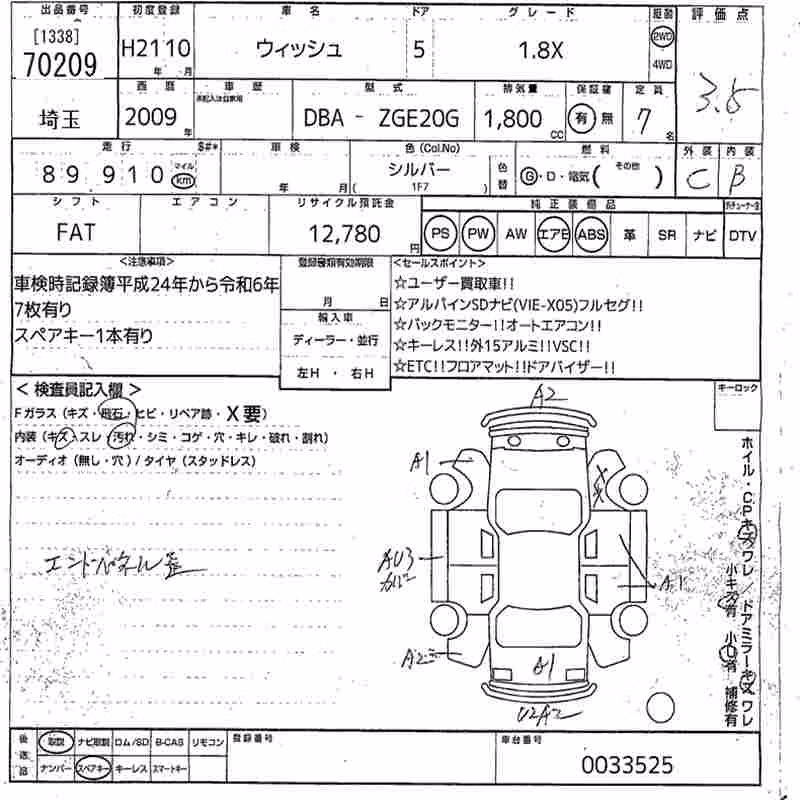 出品番号 初度登録 車名 ドア グレード 駆動 評価点
[1338] 70209 H21 10 年 月 ウィッシュ 5 1.8X 2WD 4WD 3.5
埼玉 西暦 2009年 車歴 未記入は自家用 型式 DBA - ZGE20G 排気量 1,800 CC 保証書 有 無 定員 7名
走行 $#* 車検 色(Col.No) 燃料 外装 内装
89 910 マイル km 年 月 シルバー ( 1F7 ) 色替 G・D・電気( その他 ) C B
シフト エアコン リサイクル預託金 純正装備品
FAT 12,780 円 PS PW AW エアB ABS 革 SR ナビ DTV
<注意事項> 登録書類有効期限 <セールスポイント>
車検時記録簿平成24年から令和6年
7枚有り
スペアキー1本有り
月 日
輸入車
ディーラー・並行
左H ・ 右H
☆ユーザー買取車!!
☆アルパインSDナビ(VIE-X05)フルセグ!!
☆バックモニター!!オートエアコン!!
☆キーレス!!外15アルミ!!VSC!!
☆ETC!!フロアマット!!ドアバイザー!!
< 検査員記入欄 >
キーロック
Fガラス (キズ・飛石・ヒビ・リペア跡・X要)
内装 (キズ・スレ・汚れ・シミ・コゲ・穴・キレ・破れ・割れ)
オーディオ (無し・穴) / タイヤ (スタッドレス)
エンドパネル歪
A2
A1
AU3
カバー
A1
A2
A1
U2A2
ホイル・CPキズワレ/ドアミラーキズワレ
小キズ有 小U有 補修有
後送品 取説 ナビ取説 ロム/SD B-CAS リモコン 登録番号 車台番号
ナンバー スペアキー キーレス スマートキー 0033525